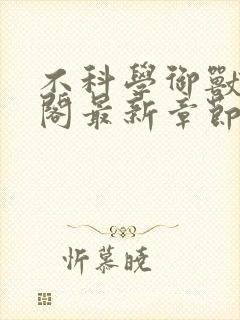 不科學御獸
閣最新章節
忻慕曉